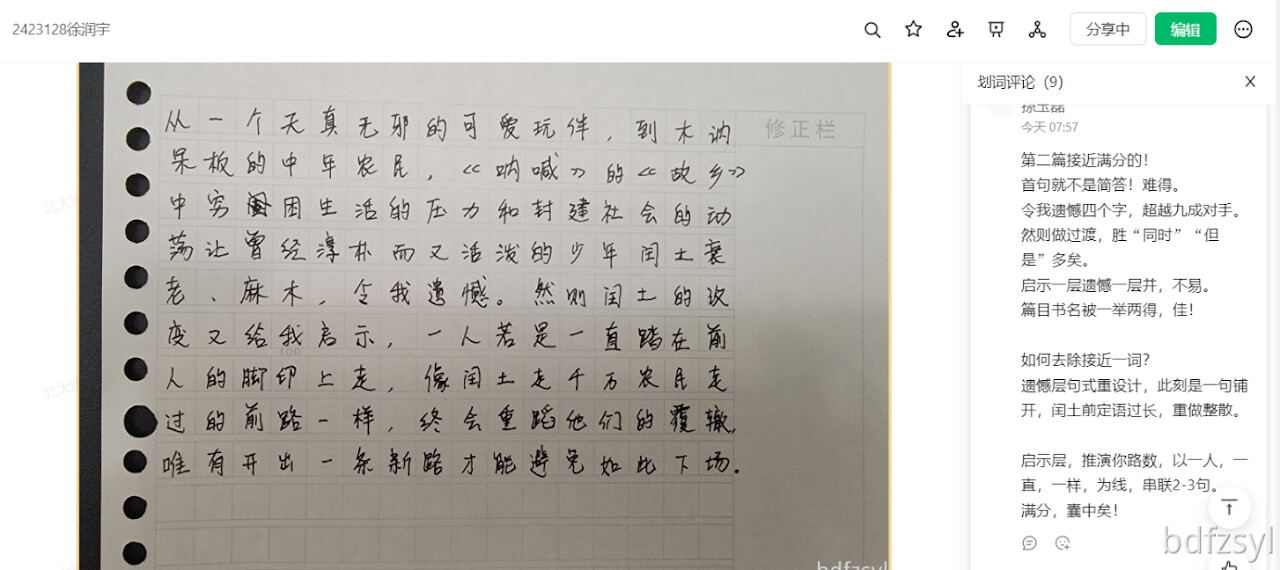 2423128徐润宇
分享中
编辑
划词评论（9）
孫玉磊
今天 07:57
第二篇接近满分的！
首句就不是简答！难得。
令我遗憾四个字，超越九成对手。
然则做过渡，胜“同时”“但
是”多矣。
启示一层遗憾一层并，不易。
篇目书名被一举两得，佳！
如何去除接近一词？
遗憾层句式重设计，此刻是一句铺
开，闰土前定语过长，重做整散。
启示层，推演你路数，以一人，一
直，一样，为线，串联2-3句。
满分，囊中矣！
修正栏
从一个天真无邪的可爱玩伴，到木讷
呆板的中年农民，《呐喊》的《故乡》
中穷困生活的压力和封建社会的动
荡让曾经淳朴而又活泼的少年闰土衰
老、麻木，令我遗憾。然则闰土的改
变又给我启示，一人若是一直踏在前
100
人的脚印上走，像闰土走千万农民走
过的前路一样，终会重蹈他们的覆辙，
唯有开出一条新路才能避免如此下场。
北大
北大
bdfzsyl
bdfzsyl